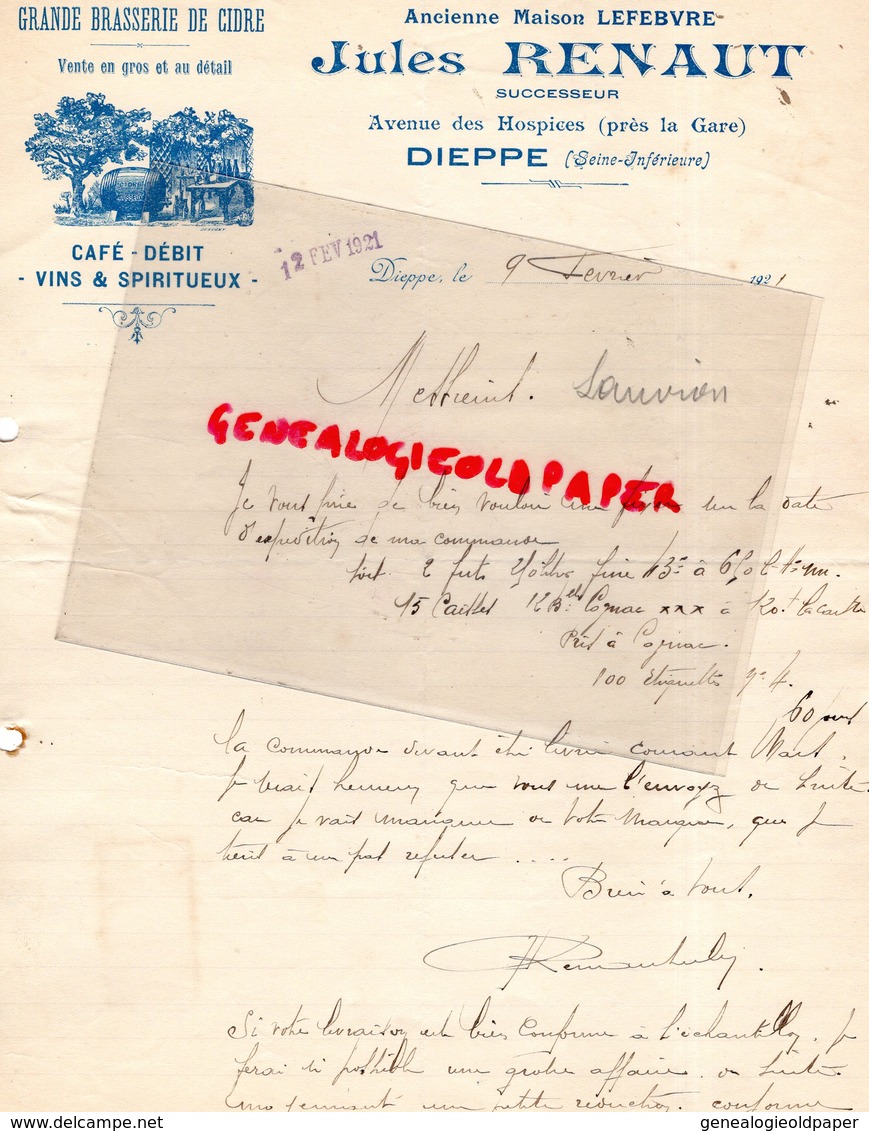 GRANDE BRASSERIE DE CIDRE
Vente en gros et au détail
CAFÉ - DÉBIT
- VINS & SPIRITUEUX -
Ancienne Maison LEFEBVRE
Jules RENAUT
SUCCESSEUR
Avenue des Hospices (près la Gare)
DIEPPE (Seine-Inférieure)
12 FEV 1921
Dieppe, le 9 Février 1921
Messieurs. Sauvion
GENEALOGIEOLDPAPER
Je vous prie de bien vouloir me sur la date
d'expédition de ma commande
soit 2 futs fine à
15 Caisses 12 Blles Cognac xxx à 120f la caisse
Pris à Cognac.
100 étiquettes no 4.
60 jours
La commande devant être livrée courant Mars,
je serais heureux que vous me l'envoyez de suite
car je vais manquer de votre Marque, que je
tiens à ne pas refuser ....
Bien à vous.
Si votre livraison est bien conforme à l'échantillon, je
ferai si possible une grosse affaire de suite
moyennant une petite réduction, conforme
delcampe.net
genealogieoldpaper